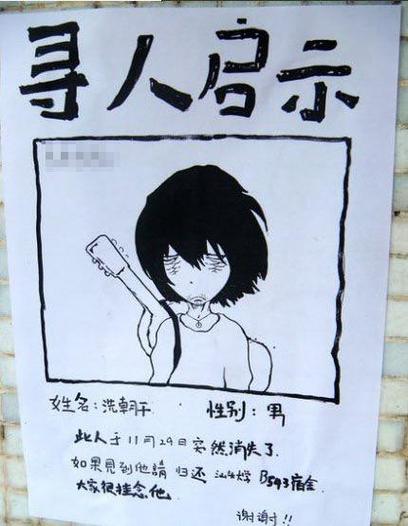 寻人启示
姓名:洗朝干 性别:男
此人于11月29日突然消失了.
如果見到他請 归还 B543宿舍.
大家很挂念他.
谢谢!!